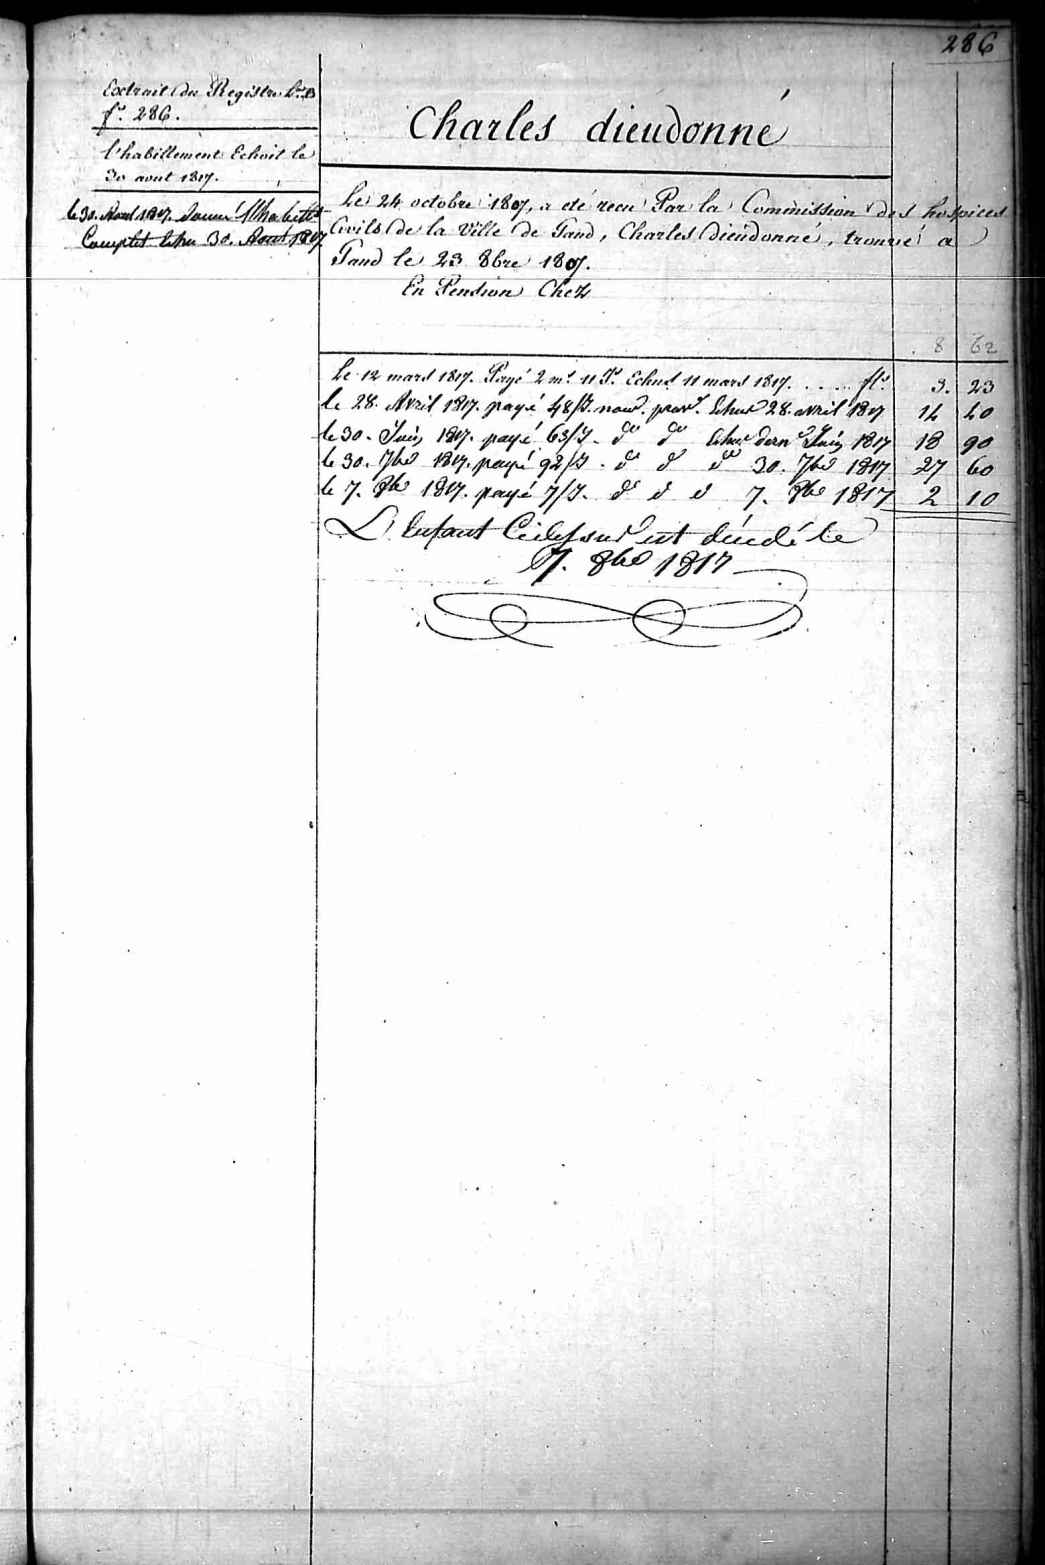 286
Extrait du Registre Lra B
f° 286.
l'habillement Echoit le
30 aout 1817.
le 30. Aout 1817. donné l'habillt
Complet Echu 30. Aout 1817
Charles dieudonné
Le 24 octobre 1807, a été recu Par la Commission des hospices
Civils de la Ville de Gand, Charles Dieudonné, trouvé a
Gand le 23 8bre 1807.
En Pension Chez
8 62
Le 12 mars 1817. Payé 2 ms 11 Js Echus 11 mars 1817. . . . . fls 3. 23
le 28. Avril 1817. payé 48/J. nouv. prov. Echus 28. avril 1817 14 40
le 30. Juin 1817. payé 63/J. do do Echus dern Juin 1817 18 90
le 30. 7bre 1817. payé 92/J. do do do 30. 7bre 1817 27 60
le 7. 8bre 1817. payé 7/J. do do do 7. 8bre 1817 2 10
L'Enfant Cidessus est décédé le
7. 8bre 1817